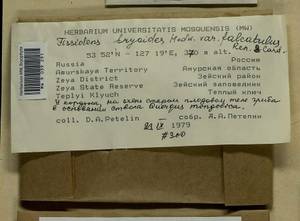 HERBARIUM UNIVERSITATIS MOSQUENSIS (MW)
Fissidens bryoides Hedw. var. falcatulus
Ren. & Card.
53 52'N - 127 19'E, 370 m alt.
Russia Россия
Amurskaya Territory Амурская область
Zeya District Зейский район
Zeya State Reserve Зейский заповедник
Teplyi Klyuch Теплый ключ
У кордона, на старом плодовом теле гриба
в основании ствола Quercus mongolica.
coll. D.A.Petelin собр. Д.А.Петелин
21 IX 1979
#300